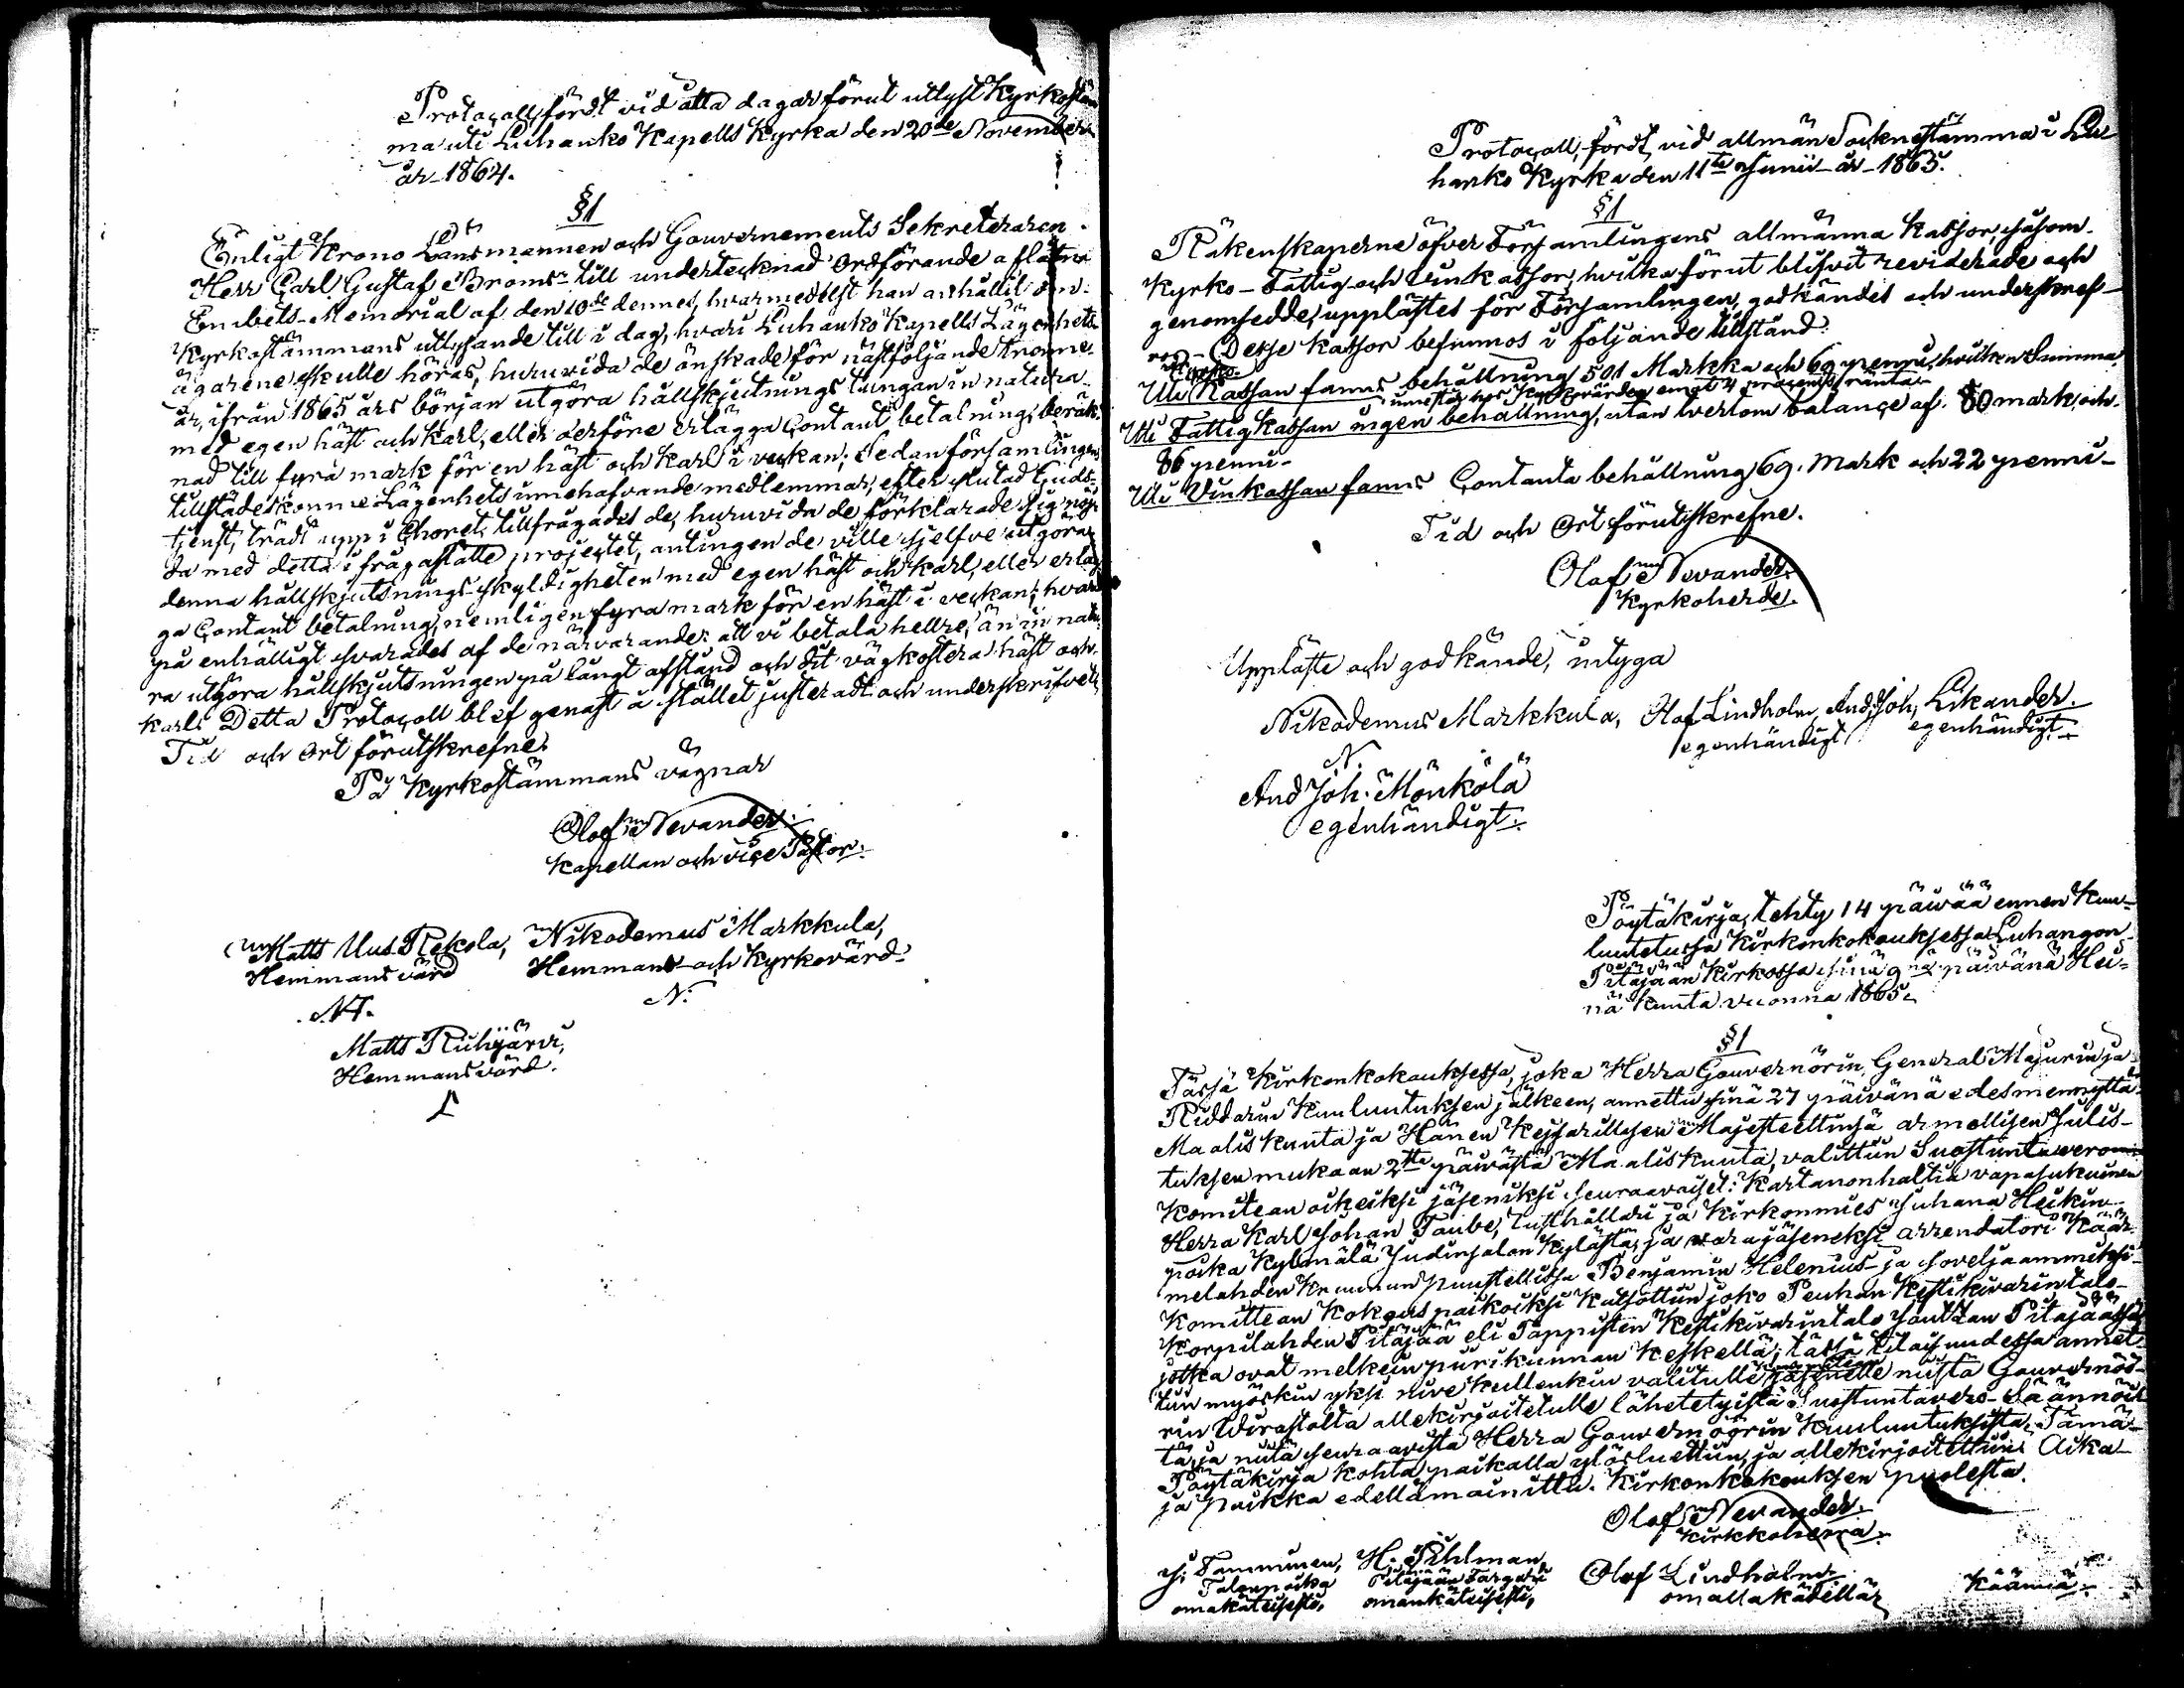 Protocoll, fördt vid åtta dagar förut utlyst Kyrkostäm
ma uti Luhanko Kapells Kyrka den 20de November
år 1864.
§1
Enligt Krono Länsmannen och Gouvernements Sekreteraren
Herr Carl Gustaf Broms till undertecknad Ordförande aflåtne
Embets-Memorial af den 10de dennes, hvarmedelst han anhållit om
Kyrkostämmans utlysande till i dag, hvari Luhanko Kapells Lägenhets
ägarene skulle höras, huruvida de önskade för nästföljande trenne
år, ifrån 1865 års början utgöra hållskjutnings tungan in natura
med egen häst och karl, eller derföre erlägga Contant betalning, beräk
nad till fyra mark för en häst och karl i veckan; Sedan församlingens
tillstädeskomne Lägenhets innehafvande medlemmar, efter slutad Guds-
tjenst, trädt upp i Choret, tillfrågades de, huruvida de förklarade sig nöj
da med detta ifrågastälte projectet, antingen de ville sjelfve utgöra
denna hållskjutnings-skyldigheten med egen häst och karl, eller erläg
ga Contant betalning, nemligen fyra mark för en häst i veckan; hvar
på enhälligt svarades af de närvarande: att vi betala hellre, än in natu
ra utgöra hållskjutsningen på långt afstånd och dit vägkostera häst och
karl. Detta Protocoll blef genast å stället justeradt och underskrifvet,
Tid och Ort förutskrefne.
På Kyrkostämmans vägnar
Olof Nevander.
Kapellan och vice Pastor.
Matts Uus-Rekola, Nikodemus Markkula,
Hemmansvärd Hemmans- och Kyrkovärd.
N.
Matts Ruhjärvi,
Hemmansvärd.
Protocoll, fördt vid allmän Socknestämma i Lu
hanko Kyrka den 11te Junii år 1865.
§1
Räkenskaperne öfver Församlingens allmänna kassor, såsom
Kyrko- Fattig- och Vinkassor, hvilka förut blifvit reviderade och
genomsedde, upplästes för Församlingen, godkändes och underskref-
vos. - Desse kassor befunnos i följande tillstånd:
Kyrko-
Uti Kassan fanns behållning 501 Markka och 69 penni, hvilken Summa
innestår hos Kyrkovärden emot 4 procents ränta.
Uti Fattigkassan ingen behållning, utan tvertom balance af 80 mark och
86 penni.
Uti Vinkassan fanns Contanta behållning 69. Mark och 22 penni
Tid och Ort förutskrefne.
Olof Nevander.
Kyrkoherde.
Uppläste och godkände, intyga
Nikodemus Markkula, Olof Lindholm, And. Joh. Likander.
N. egenhändigt, egenhändigt.
And Joh. Mönkölä
egenhändigt.
Pöytäkirja, tehty 14 päivää ennen kuu-
lutetussa Kirkonkokouksessa Luhangon
Pitäjään Kirkossa sinä 9nä päivänä Hei-
nä Kuuta vuonna 1865.
§1
Tässä Kirkonkokouksessa, joka Herra Gouvernörin, General Majurin ja
Riddarin Kuuluutuksen jälkeen, annettu sinä 27 päivänä edesmennyttä
Maaliskuuta ja Hänen Keisarillisen Majesteettinsä armollisen Julis-
tuksen mukaan 2tta päivästä Maaliskuuta, valittiin Suostuntavero
Komitean oikeiksi jäseniksi seuraavaiset: Kartanonhaltia vapasukuinen
Herra Karl Johan Taube, Lusthållari ja Kirkonmies Juhana Heikin
poika Kylmälä Judinsalon Kylästä, ja varajäseneksi arrendatori Käär-
melahden Kruunun puustellissa Benjamin Helenius ja soveljaammiksi
Komittean Kokous paikoiksi Katsottiin joko Peuhan Kestikivarintalo
Korpilahden Pitäjää eli Tappisten Kestikivarintalo Jouttan Pitäjäässä,
jotka ovat melkein piirikunnan Keskellä; tässä tilaisuudessa annet-
tiin myöskin yksi nive Kullenkin valitulle jäsenelle niistä Gouvernöö-
rin Wirastolta allekirjoitetulle lähetetyistä Suostuntavero Säännöis
tä, ja niitä seuraavista Herra Gouvernöörin Kuuluutuksista. Tämä
Pöytäkirja kohta paikalla ylösluettiin, ja allekirjoitettiin. Aika
ja paikka edellämainittu. Kirkonkokouksen puolesta.
Olof Nevander.
Kirkkoherra.
J. Tamminen, H. Pihlman, Olof Lindholm
Talonpoika omakätisesti, omankätisesti, omallakädellä,
Käännä.